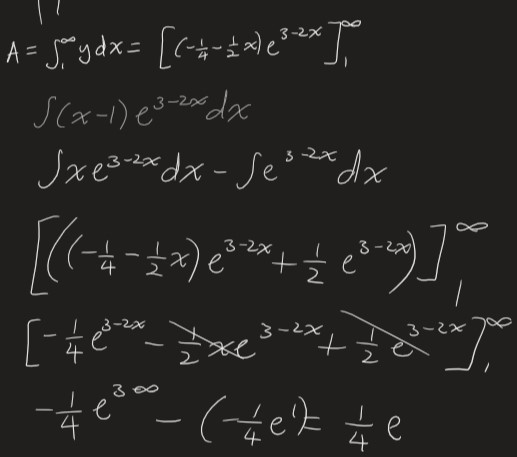 A = ∫₁^∞ y dx = [(-1/4 - 1/2 x) e^(3-2x)]₁^∞
∫(x-1) e^(3-2x) dx
∫x e^(3-2x) dx - ∫e^(3-2x) dx
[((-1/4 - 1/2 x) e^(3-2x) + 1/2 e^(3-2x))]₁^∞
[-1/4 e^(3-2x) - 1/2 x e^(3-2x) + 1/2 e^(3-2x)]₁^∞
-1/4 e^(3∞) - (-1/4 e¹) = 1/4 e